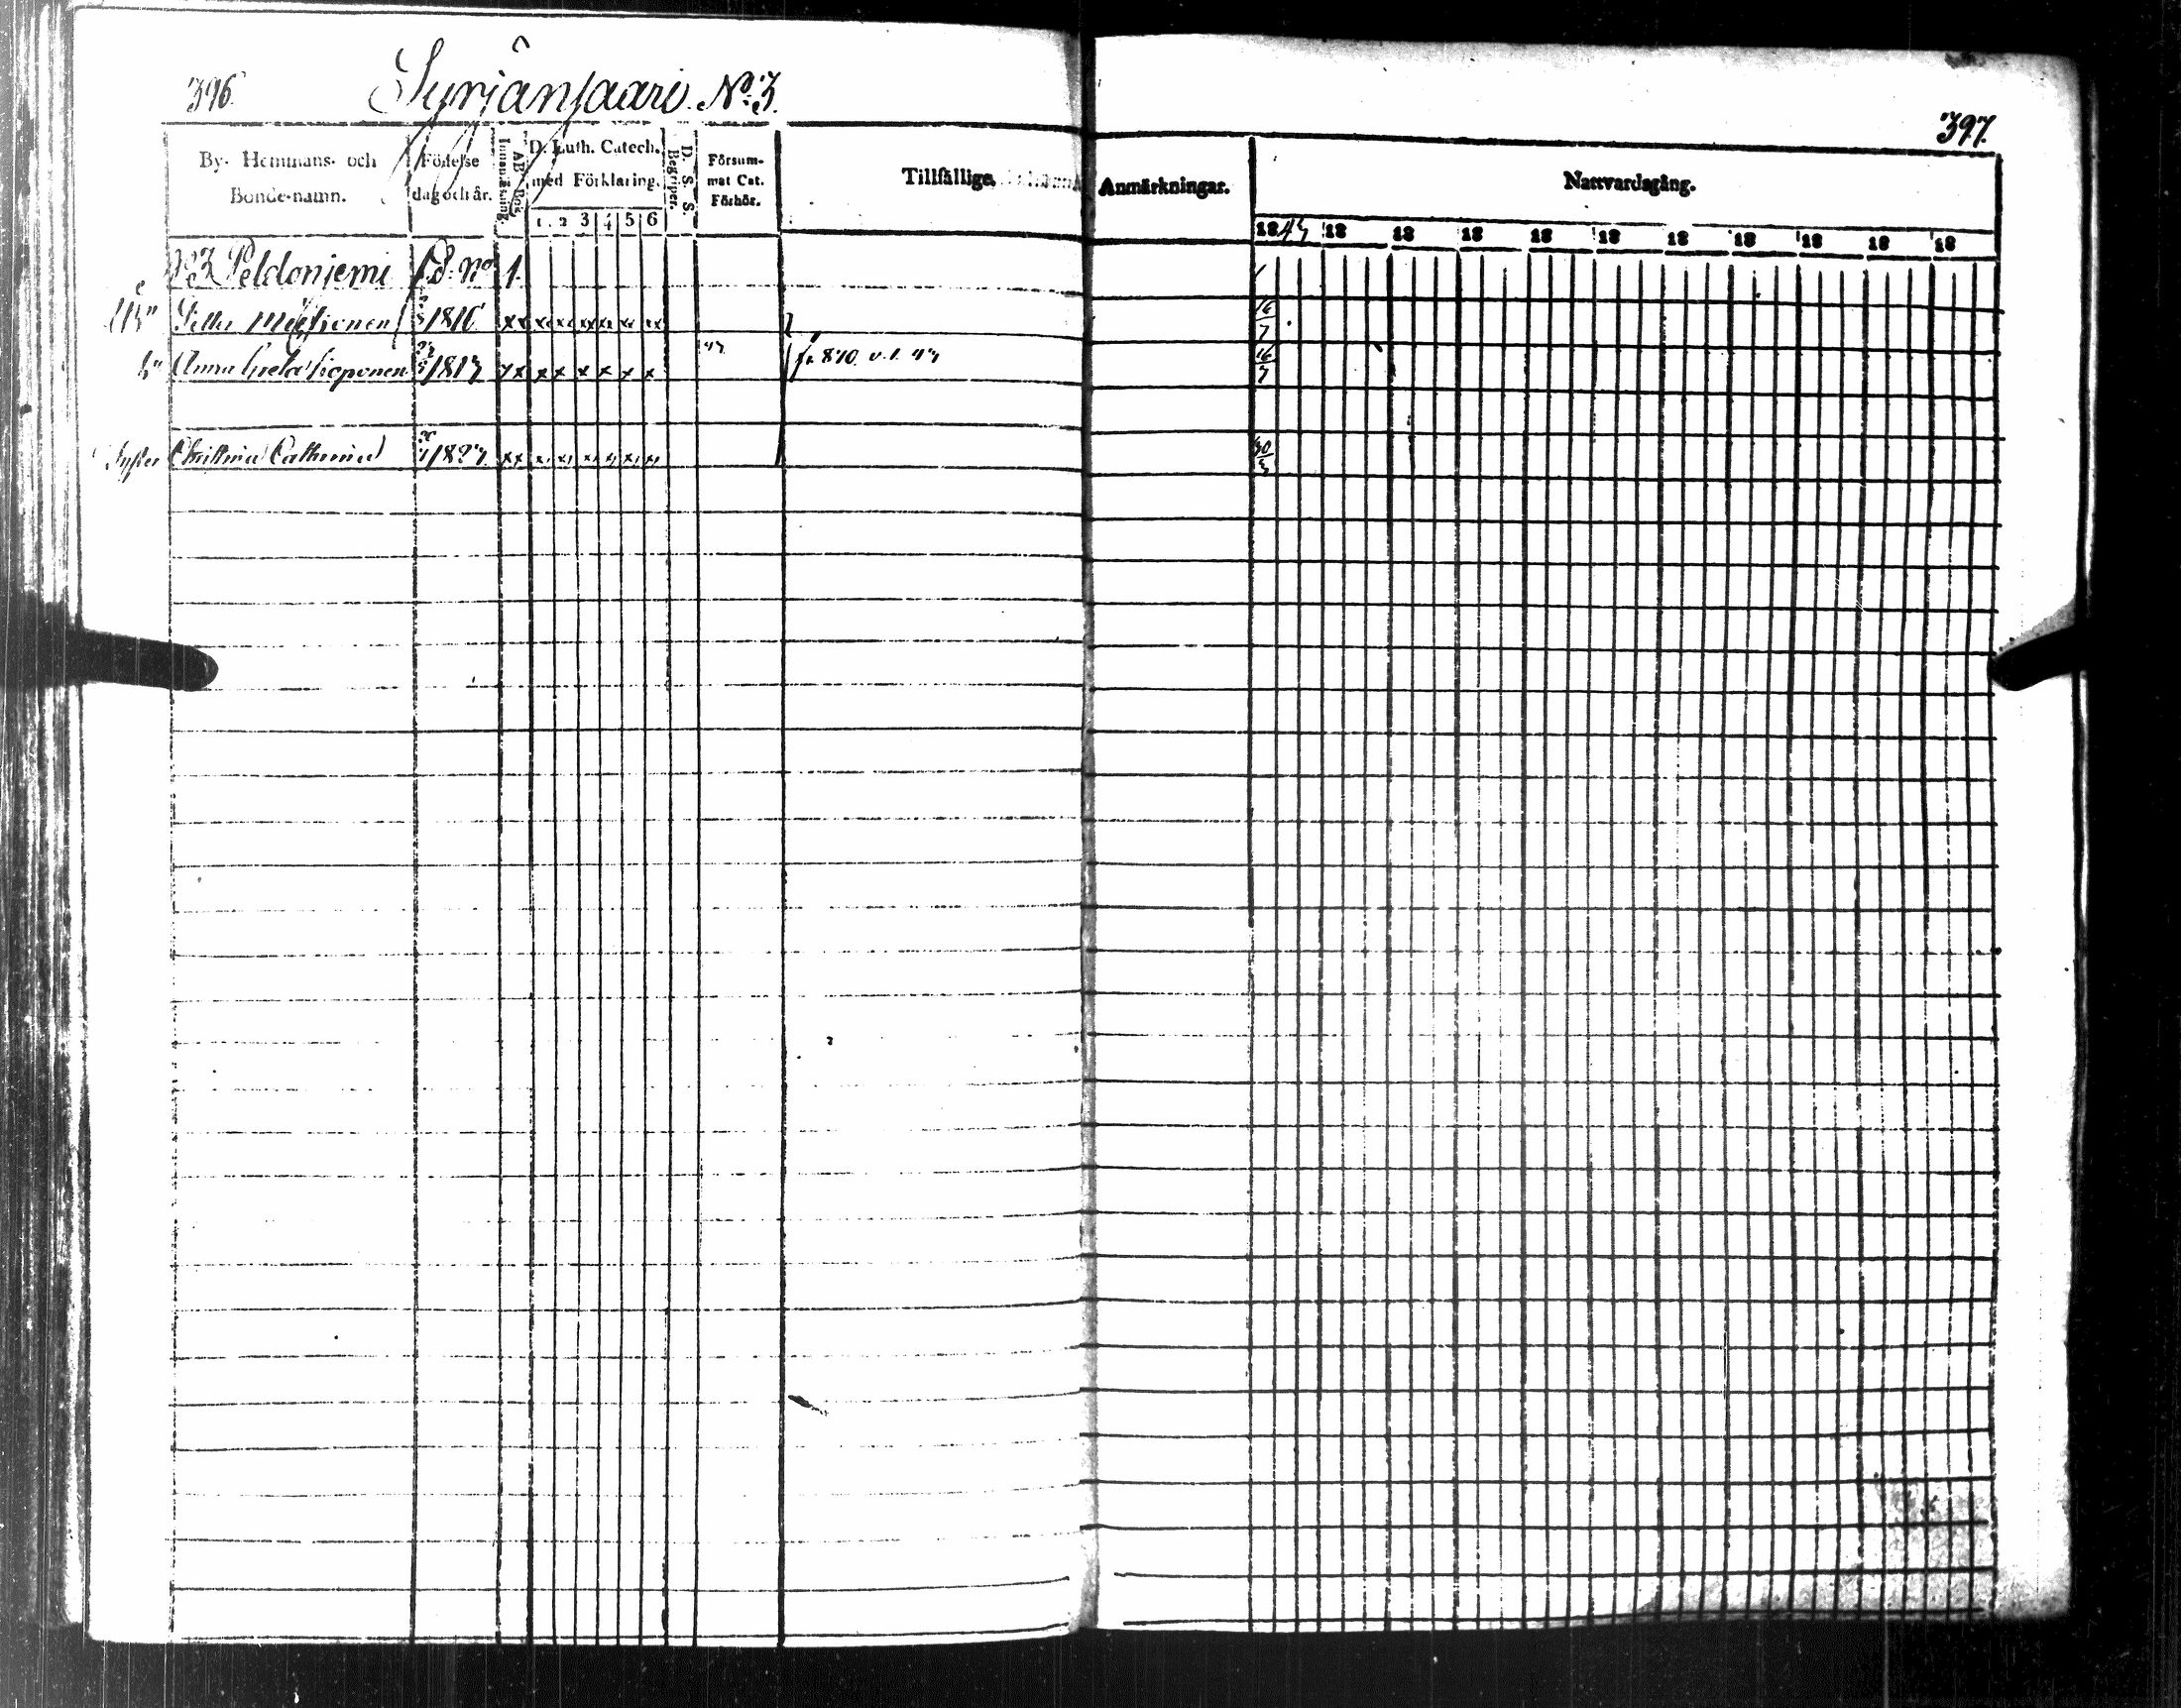 396. Syrjänsaari. No. 3.
397.
By- Hemmans- och Bonde-namn.
Födelse dag och år.
AB-Bok. Innanläsning.
D. Luth. Catech. med Förklaring.
1. 2 3 4 5 6
D. S. S. Begreper.
Försum-mat Cat. Förhör.
Tillfällige Anmärkningar.
Nattvardsgång.
1843 18 18 18 18 18 18 18 18 18 18
No 3 Peldoniemi No 1.
1816 xx xx xx xx xx xx xx 16/7
Anna Greta 1813 xx x x x x x x 43 fr. 870. v. l. 43 16/7
Syster Christina Catharina 30/3